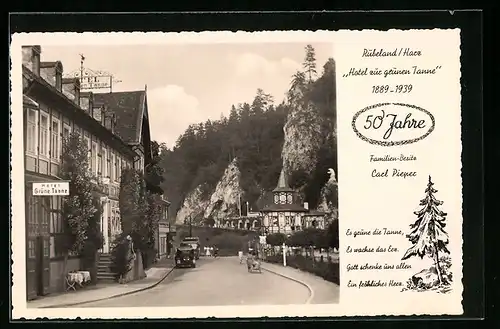 Rübeland/Harz
„Hotel zur grünen Tanne"
1889-1939
50 Jahre
Familien-Besitz
Carl Pieper
Es grüne die Tanne,
Es wachse das Erz.
Gott schenke uns allen
Ein fröhliches Herz.
HOTEL
Grüne Tanne